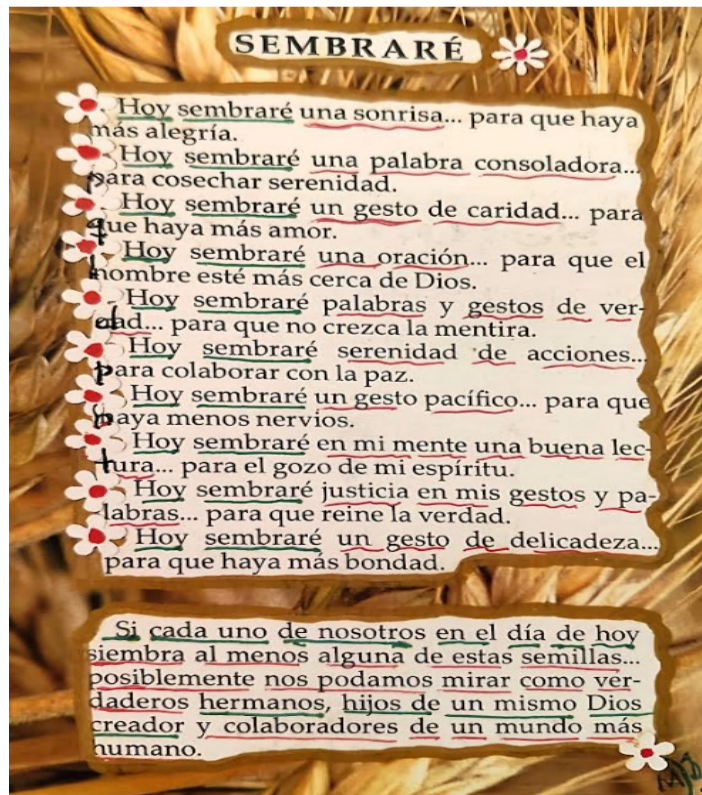 SEMBRARÉ
Hoy sembraré una sonrisa... para que haya
más alegría.
Hoy sembraré una palabra consoladora...
para cosechar serenidad.
Hoy sembraré un gesto de caridad... para
que haya más amor.
Hoy sembraré una oración... para que el
hombre esté más cerca de Dios.
Hoy sembraré palabras y gestos de ver-
dad... para que no crezca la mentira.
Hoy sembraré serenidad de acciones...
para colaborar con la paz.
Hoy sembraré un gesto pacífico... para que
haya menos nervios.
Hoy sembraré en mi mente una buena lec-
tura... para el gozo de mi espíritu.
Hoy sembraré justicia en mis gestos y pa-
labras... para que reine la verdad.
Hoy sembraré un gesto de delicadeza...
para que haya más bondad.
Si cada uno de nosotros en el día de hoy
siembra al menos alguna de estas semillas...
posiblemente nos podamos mirar como ver-
daderos hermanos, hijos de un mismo Dios
creador y colaboradores de un mundo más
humano.